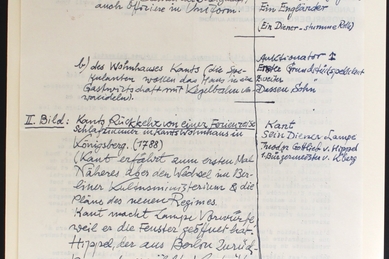 auch Offiziere in Uniform.
Ein Engländer
(Ein Diener - stumme Rolle)
b) des Wohnhauses Kants (die Spe-
kulanten wollen das Haus in eine
Gastwirtschaft mit Kegelbahn um-
wandeln).
Auktionator
Erster Grundstücksspekulant
Zweiter
Dessen Sohn
II. Bild: Kants Rückkehr von einer Ferienreise
Schlafzimmer in Kants Wohnhaus in
Königsberg. (1788)
(Kant erfährt zum ersten Mal
Näheres über den Wechsel im Ber-
liner Kultusministerium & die
Pläne des neuen Regimes.
Kant macht Lampe Vorwürfe,
weil er die Fenster geöffnet hat.
Hippel, der aus Berlin zurück-
Kant
Sein Diener Lampe
Theodor Gottlieb v. Hippel
Bürgermeister v. Kberg